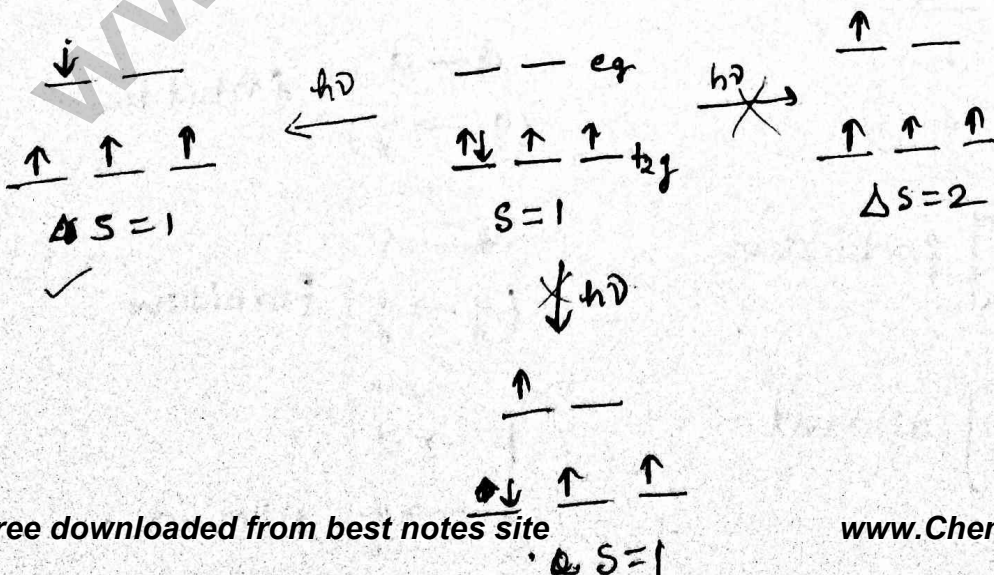 WW
↓ __
↑ ↑ ↑
S = 1
✓
hν
__ __ eg
↑↓ ↑ ↑ t2g
S = 1
hν
↑ __
↑ ↑ ↑
ΔS = 2
hν
↑ __
↓ ↑ ↑
S = 1
ree downloaded from best notes site
www.Cher